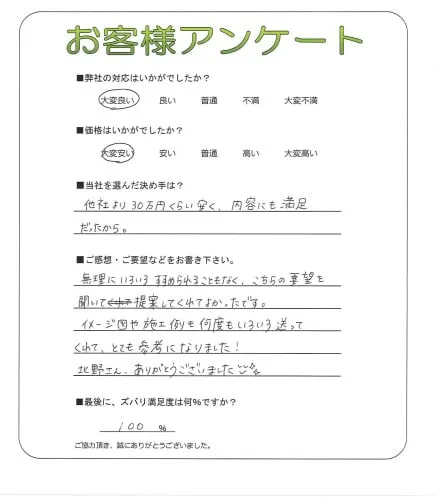 お客様アンケート
■弊社の対応はいかがでしたか？
大変良い 良い 普通 不満 大変不満
■価格はいかがでしたか？
大変安い 安い 普通 高い 大変高い
■当社を選んだ決め手は？
他社より30万円くらい安く、内容にも満足
だったから。
■ご感想・ご要望などをお書き下さい。
無理にいろいろすすめられることもなく、こちらの要望を
聞いてくれて提案してくれてよかったです。
イメージ図や施工例も何度もいろいろ送って
くれて、とても参考になりました！
北野さん、ありがとうございました
■最後に、ズバリ満足度は何％ですか？
100 ％
ご協力頂き、誠にありがとうございました。